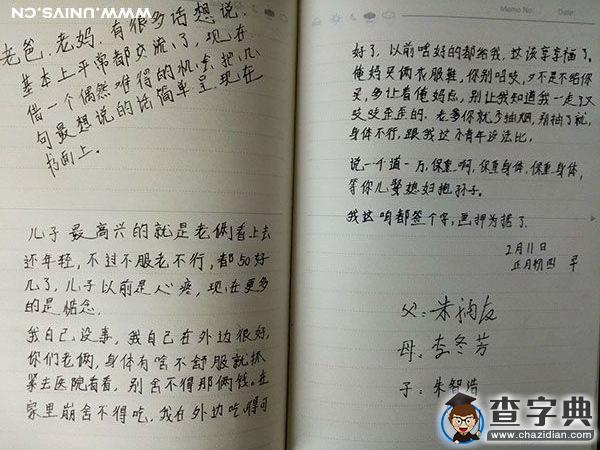 WWW.UNIVS.CN
老爸、老妈,有很多话想说,
基本上平常都交流了,现在
借一个偶然难得的机会,把几
句最想说的话简单呈现在
书面上。
儿子最高兴的就是老俩看上去
还年轻,不过不服老不行,都50好
几了,儿子以前是心疼,现在更多
的是惦念。
我自己没事,我自己在外边很好,
你们老俩,身体有啥不舒服就抓
紧去医院看看,别舍不得那俩钱。在
家里崩舍不得吃,我在外边吃得可
Memo No:
Date:
好了,以前啥好的都给我,这该享享福了。
俺妈买俩衣服鞋,你别咬,又不是不给你
买,多让着俺妈点,别让我知道我一走了又
歪歪的。老爹你就少抽烟,别抽了就,
身体不行,跟我这小青年没法比。
说一千道一万,保重啊,保重身体,保重身体,
等你儿娶媳妇抱孙子。
我这咱都签个字,画押为据了。
2月11日
正月初四 早
父:朱友
母:李冬芳
子:朱智浩
查字典
www.chazidian.com